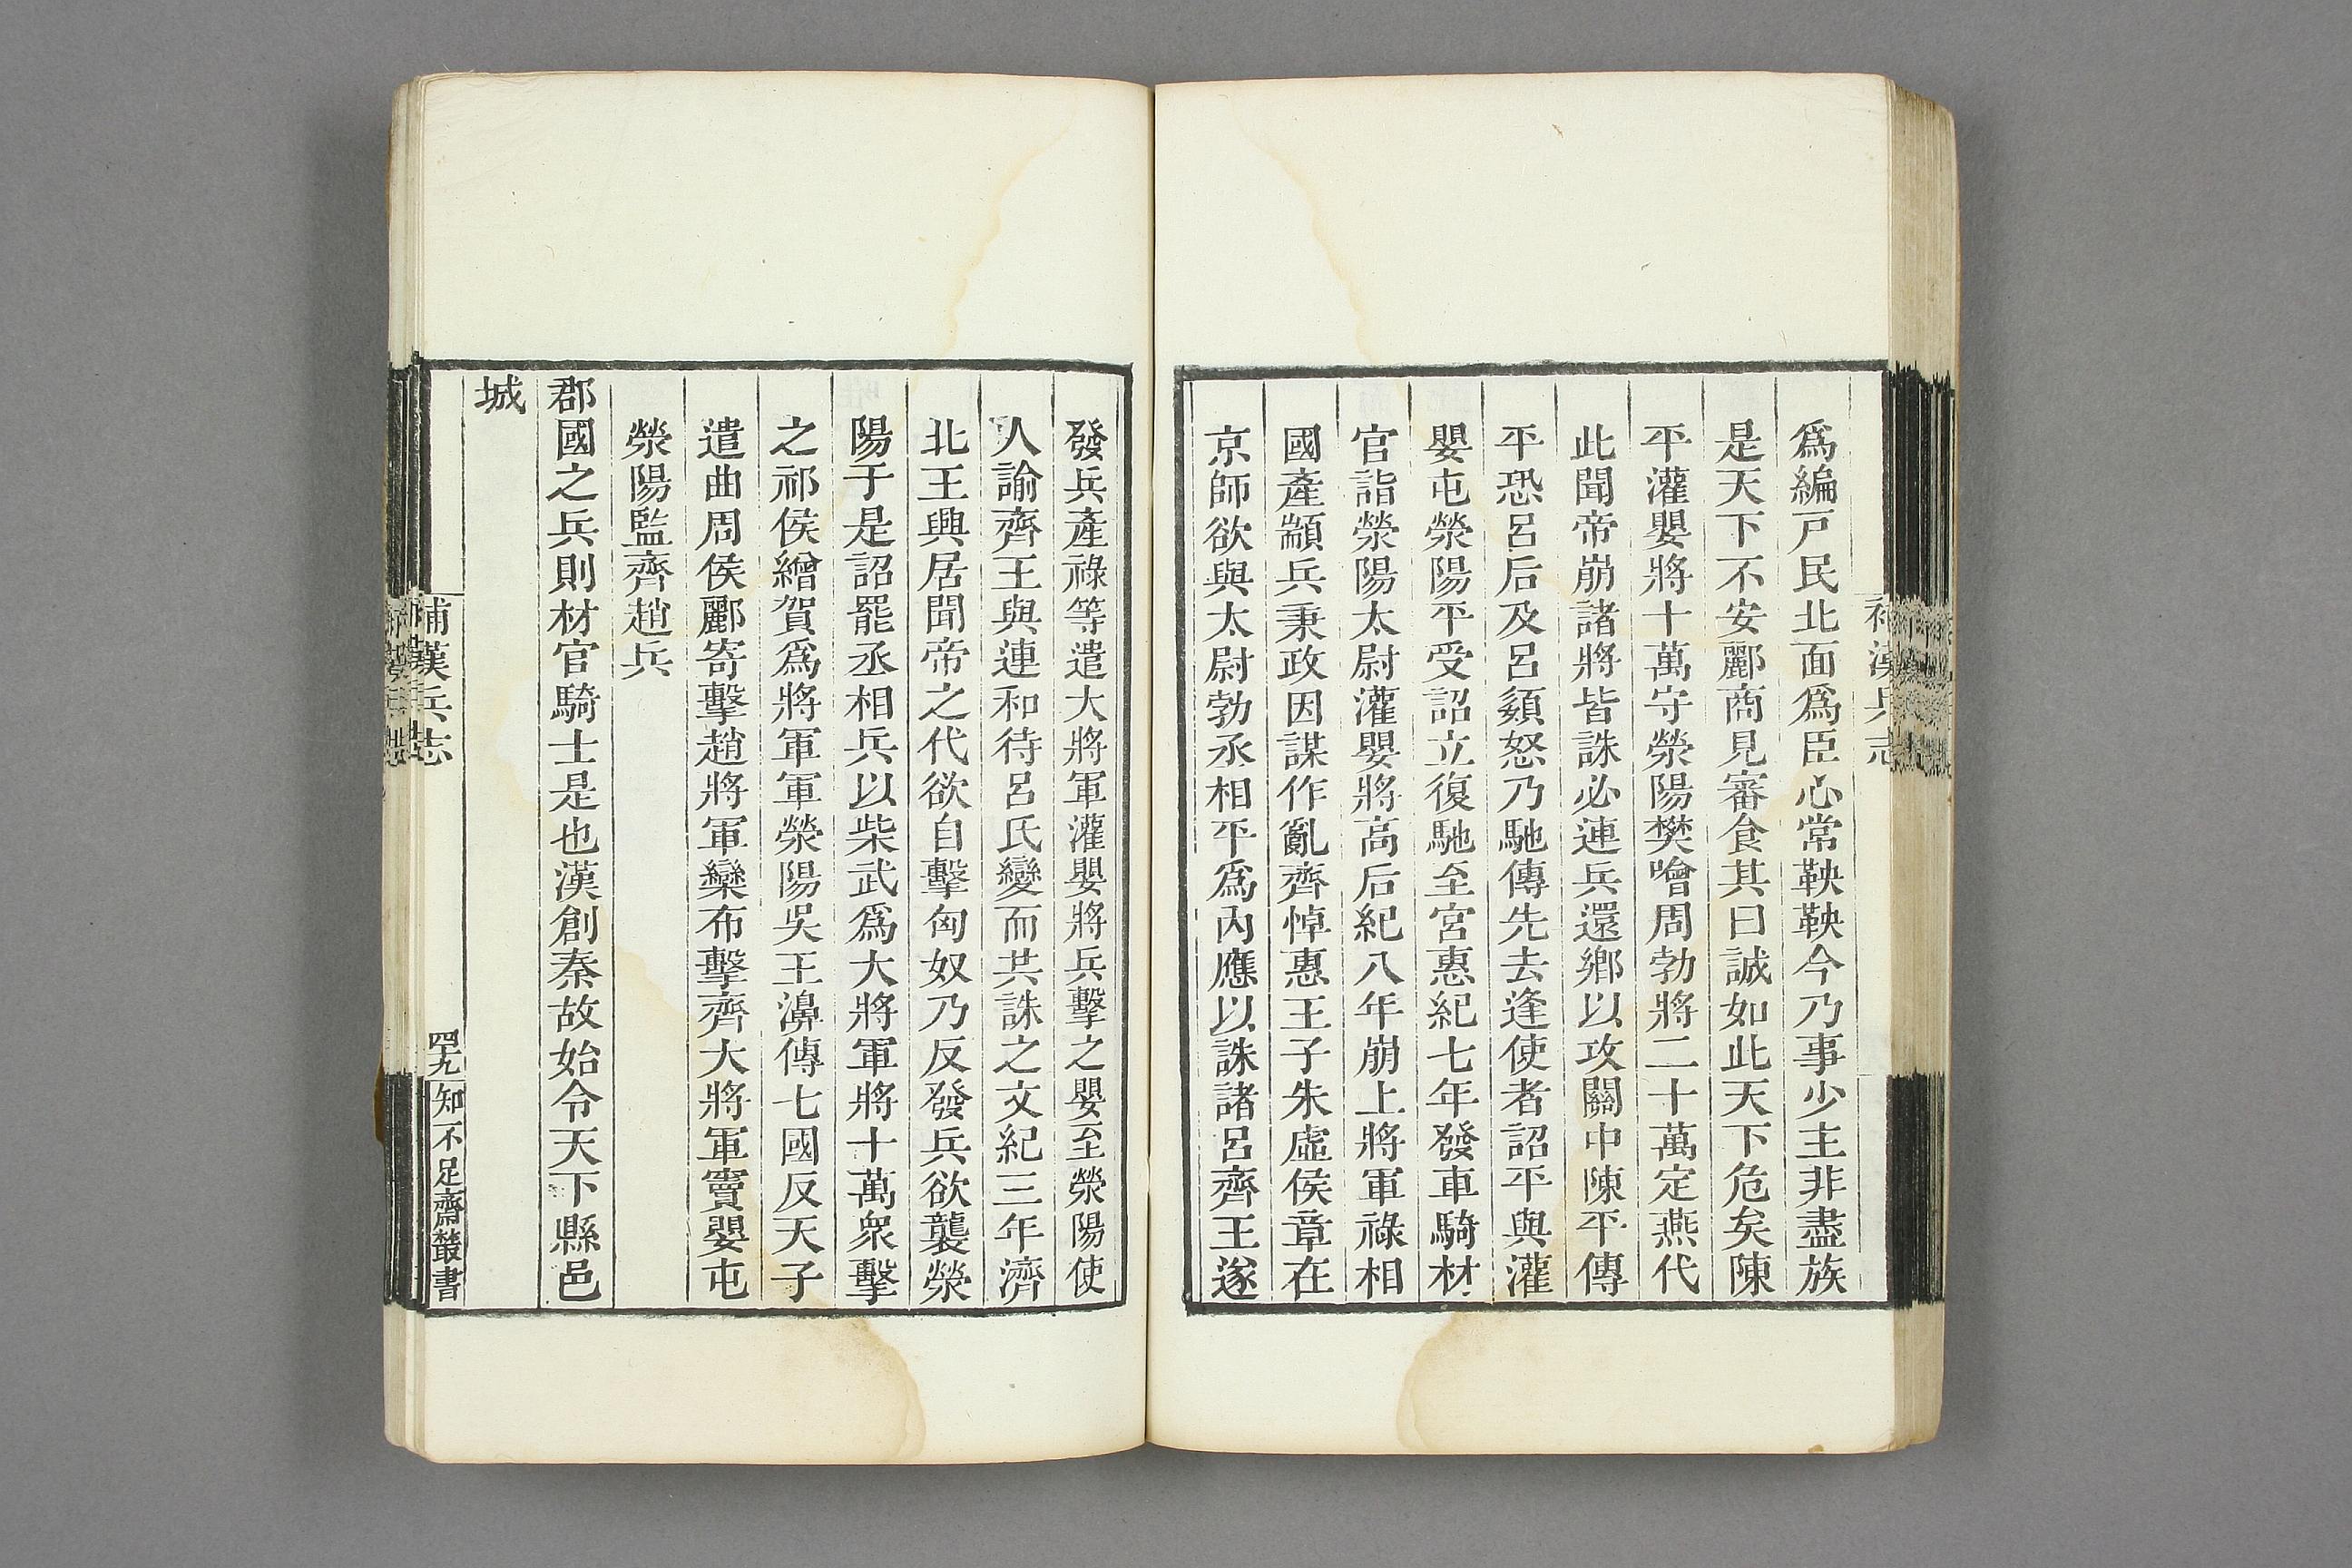 補漢兵志
爲編戸民北面爲臣心常鞅鞅今乃事少主非盡族
是天下不安酈商見審食其曰誠如此天下危矣陳
平灌嬰將十萬守滎陽樊噲周勃將二十萬定燕代
此聞帝崩諸將皆誅必連兵還鄉以攻關中陳平傳
平恐呂后及呂嬃怒乃馳傳先去逢使者詔平與灌
嬰屯滎陽平受詔立復馳至宮惠紀七年發車騎材
官詣滎陽太尉灌嬰將高后紀八年崩上將軍祿相
國產顓兵秉政因謀作亂齊悼惠王子朱虛侯章在
京師欲與太尉勃丞相平爲內應以誅諸呂齊王遂
發兵產祿等遣大將軍灌嬰將兵擊之嬰至滎陽使
人諭齊王與連和待呂氏變而共誅之文紀三年濟
北王興居聞帝之代欲自擊匈奴乃反發兵欲襲滎
陽于是詔罷丞相兵以柴武爲大將軍將十萬衆擊
之祁侯繒賀爲將軍軍滎陽吳王濞傳七國反天子
遣曲周侯酈寄擊趙將軍欒布擊齊大將軍竇嬰屯
滎陽監齊趙兵
郡國之兵則材官騎士是也漢創秦故始令天下縣邑
城
補漢兵志
四九
知不足齋叢書